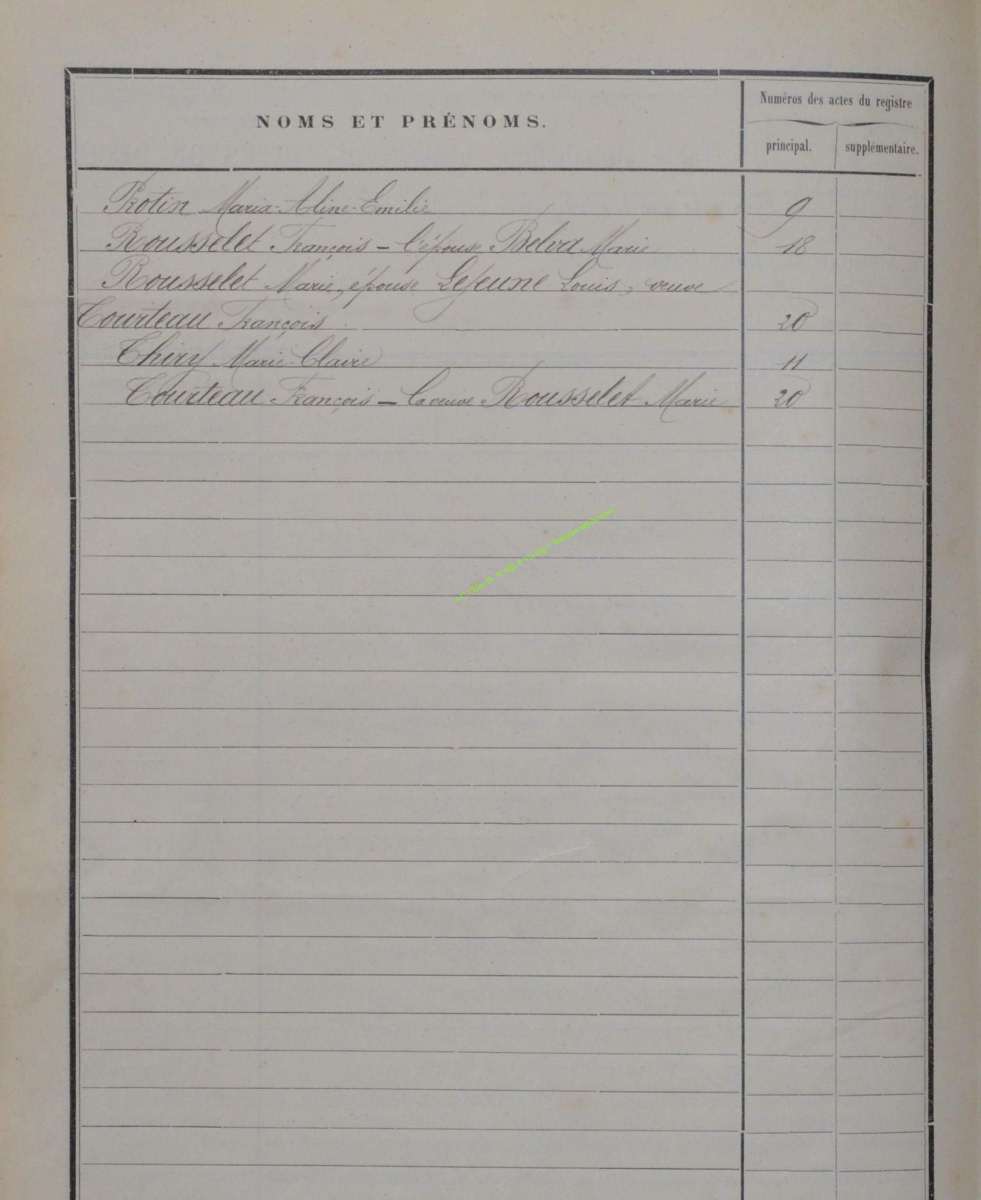 NOMS ET PRÉNOMS.
Numéros des actes du registre
principal.
supplémentaire.
Rotin Maria-Aline-Emilie 9
Rousselet François - l'épouse Belva Marie 18
Rousselet Marie, épouse Lejeune Louis, veuve
Tourteau François 20
Thiry Marie-Claire 11
Tourteau François - la veuve Rousselet Marie 20